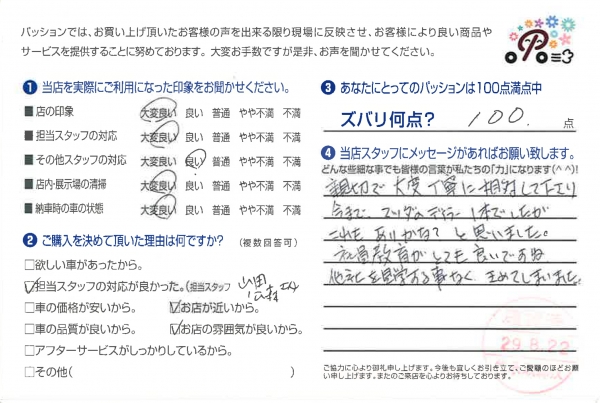 パッションでは、お買い上げ頂いたお客様の声を出来る限り現場に反映させ、お客様により良い商品や
サービスを提供することに努めております。大変お手数ですが是非、お声を聞かせてください。
❶ 当店を実際にご利用になった印象をお聞かせください。
■ 店の印象 大変良い 良い 普通 やや不満 不満
■ 担当スタッフの対応 大変良い 良い 普通 やや不満 不満
■ その他スタッフの対応 大変良い 良い 普通 やや不満 不満
■ 店内・展示場の清掃 大変良い 良い 普通 やや不満 不満
■ 納車時の車の状態 大変良い 良い 普通 やや不満 不満
❷ ご購入を決めて頂いた理由は何ですか? (複数回答可)
□欲しい車があったから。
☑担当スタッフの対応が良かった。(担当スタッフ 山田
□車の価格が安いから。 ☑お店が近いから。
□車の品質が良いから。 ☑お店の雰囲気が良いから。
□アフターサービスがしっかりしているから。
□その他( )
❸ あなたにとってのパッションは100点満点中
ズバリ何点? 100. 点
❹ 当店スタッフにメッセージがあればお願い致します。
どんな些細な事でも皆様の言葉が私たちの「力」になります(^^)!
親切で大変丁寧に相対して下さり
今まで、マツダのデーラー1本でしたが
これもありかなて と思いました。
社員教育がとても良いですね
他社を見学する事なく きめてしまいました。
29.8.22
ご協力に心より御礼申し上げます。今後も宜しくお引き立て、ご愛顧のほどお願い申し上げます。またのご来店を心よりお待ちしております。